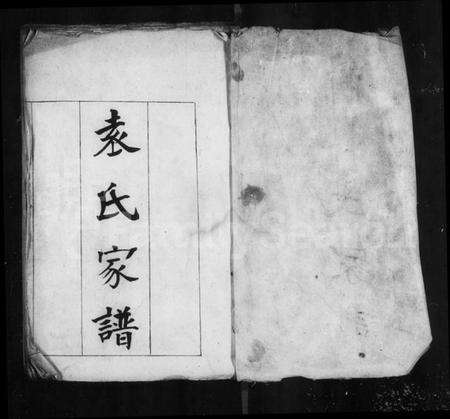 袁氏家譜